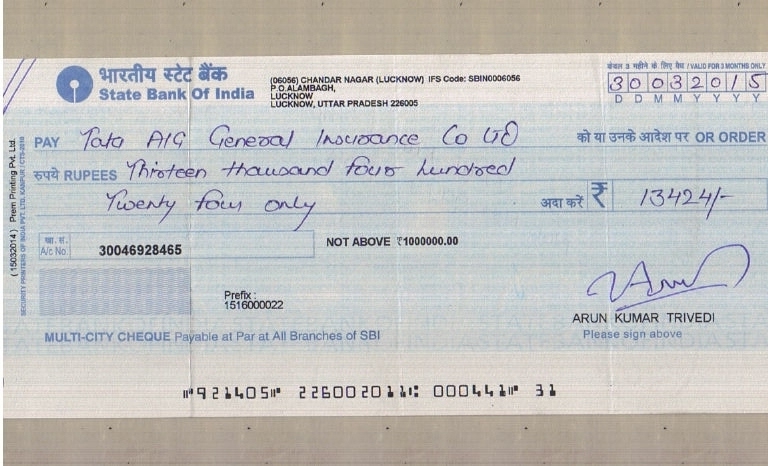 भारतीय स्टेट बैंक
State Bank Of India
(06056) CHANDAR NAGAR (LUCKNOW) IFS Code: SBIN0006056
P.O.ALAMBAGH,
LUCKNOW
LUCKNOW, UTTAR PRADESH 226005
केवल 3 महीने के लिए वैध / VALID FOR 3 MONTHS ONLY
30032015
D D M M Y Y Y Y
PAY Tata AIG General Insurance Co Ltd को या उनके आदेश पर OR ORDER
रुपये RUPEES Thirteen thousand four hundred
Twenty four only अदा करें ₹ 13424/-
खा. सं.
A/c No. 30046928465
NOT ABOVE ₹1000000.00
Prefix :
1516000022
ARUN KUMAR TRIVEDI
Please sign above
MULTI-CITY CHEQUE Payable at Par at All Branches of SBI
⑈921405⑈ 226002011⑆ 000441⑈ 31
(15032014) Prem Printing Pvt. Ltd.
SECURITY PRINTERS OF INDIA PVT. LTD. KANPUR / CTS-2010